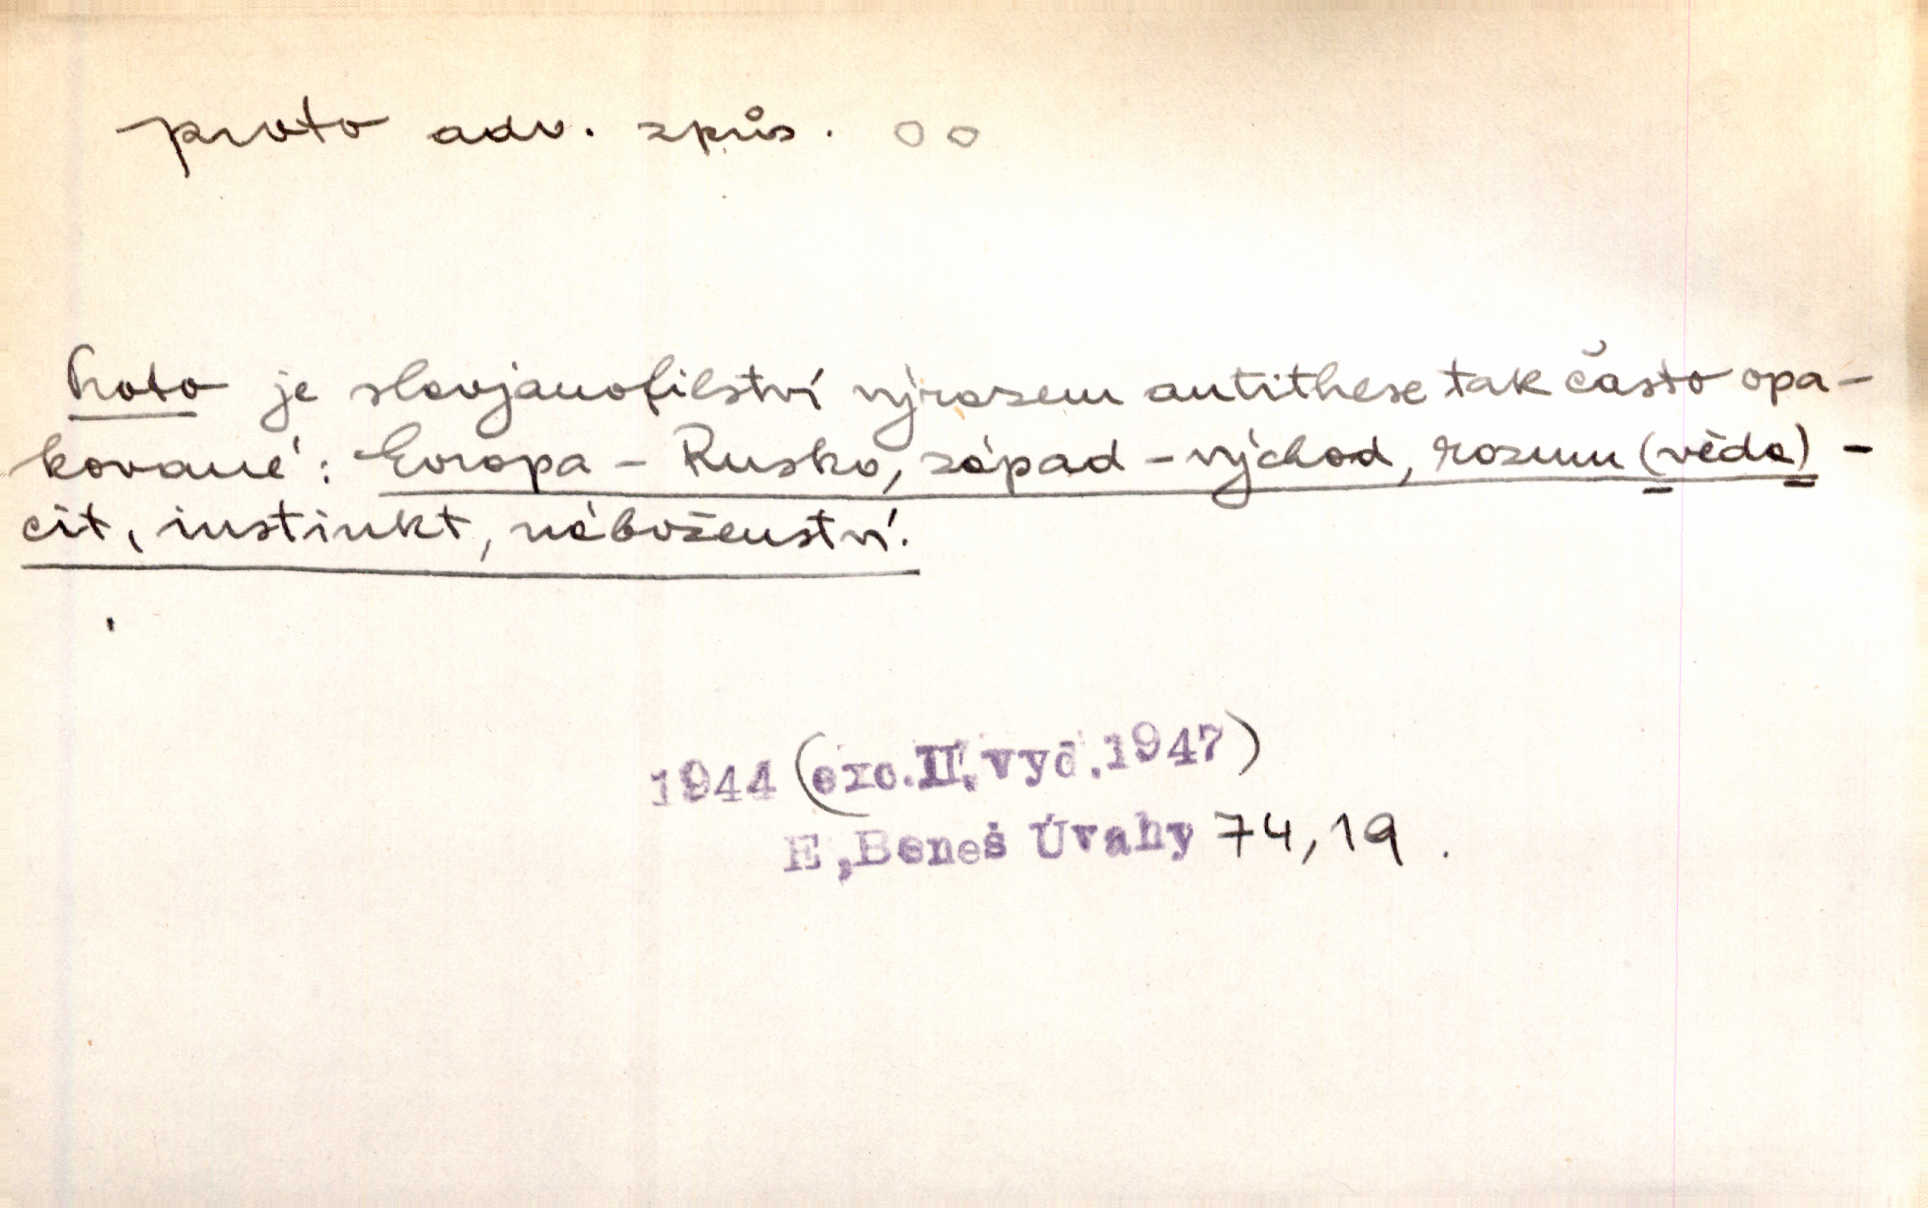 proto adv. způs. oo
Proto je slovjanofilství výrazem antithese tak často opa-
kované: Evropa - Rusko, západ - východ, rozum (věda) -
cit, instinkt, náboženství.
1944 (exc. II. vyd. 1947)
E. Beneš Úvahy 74, 19.